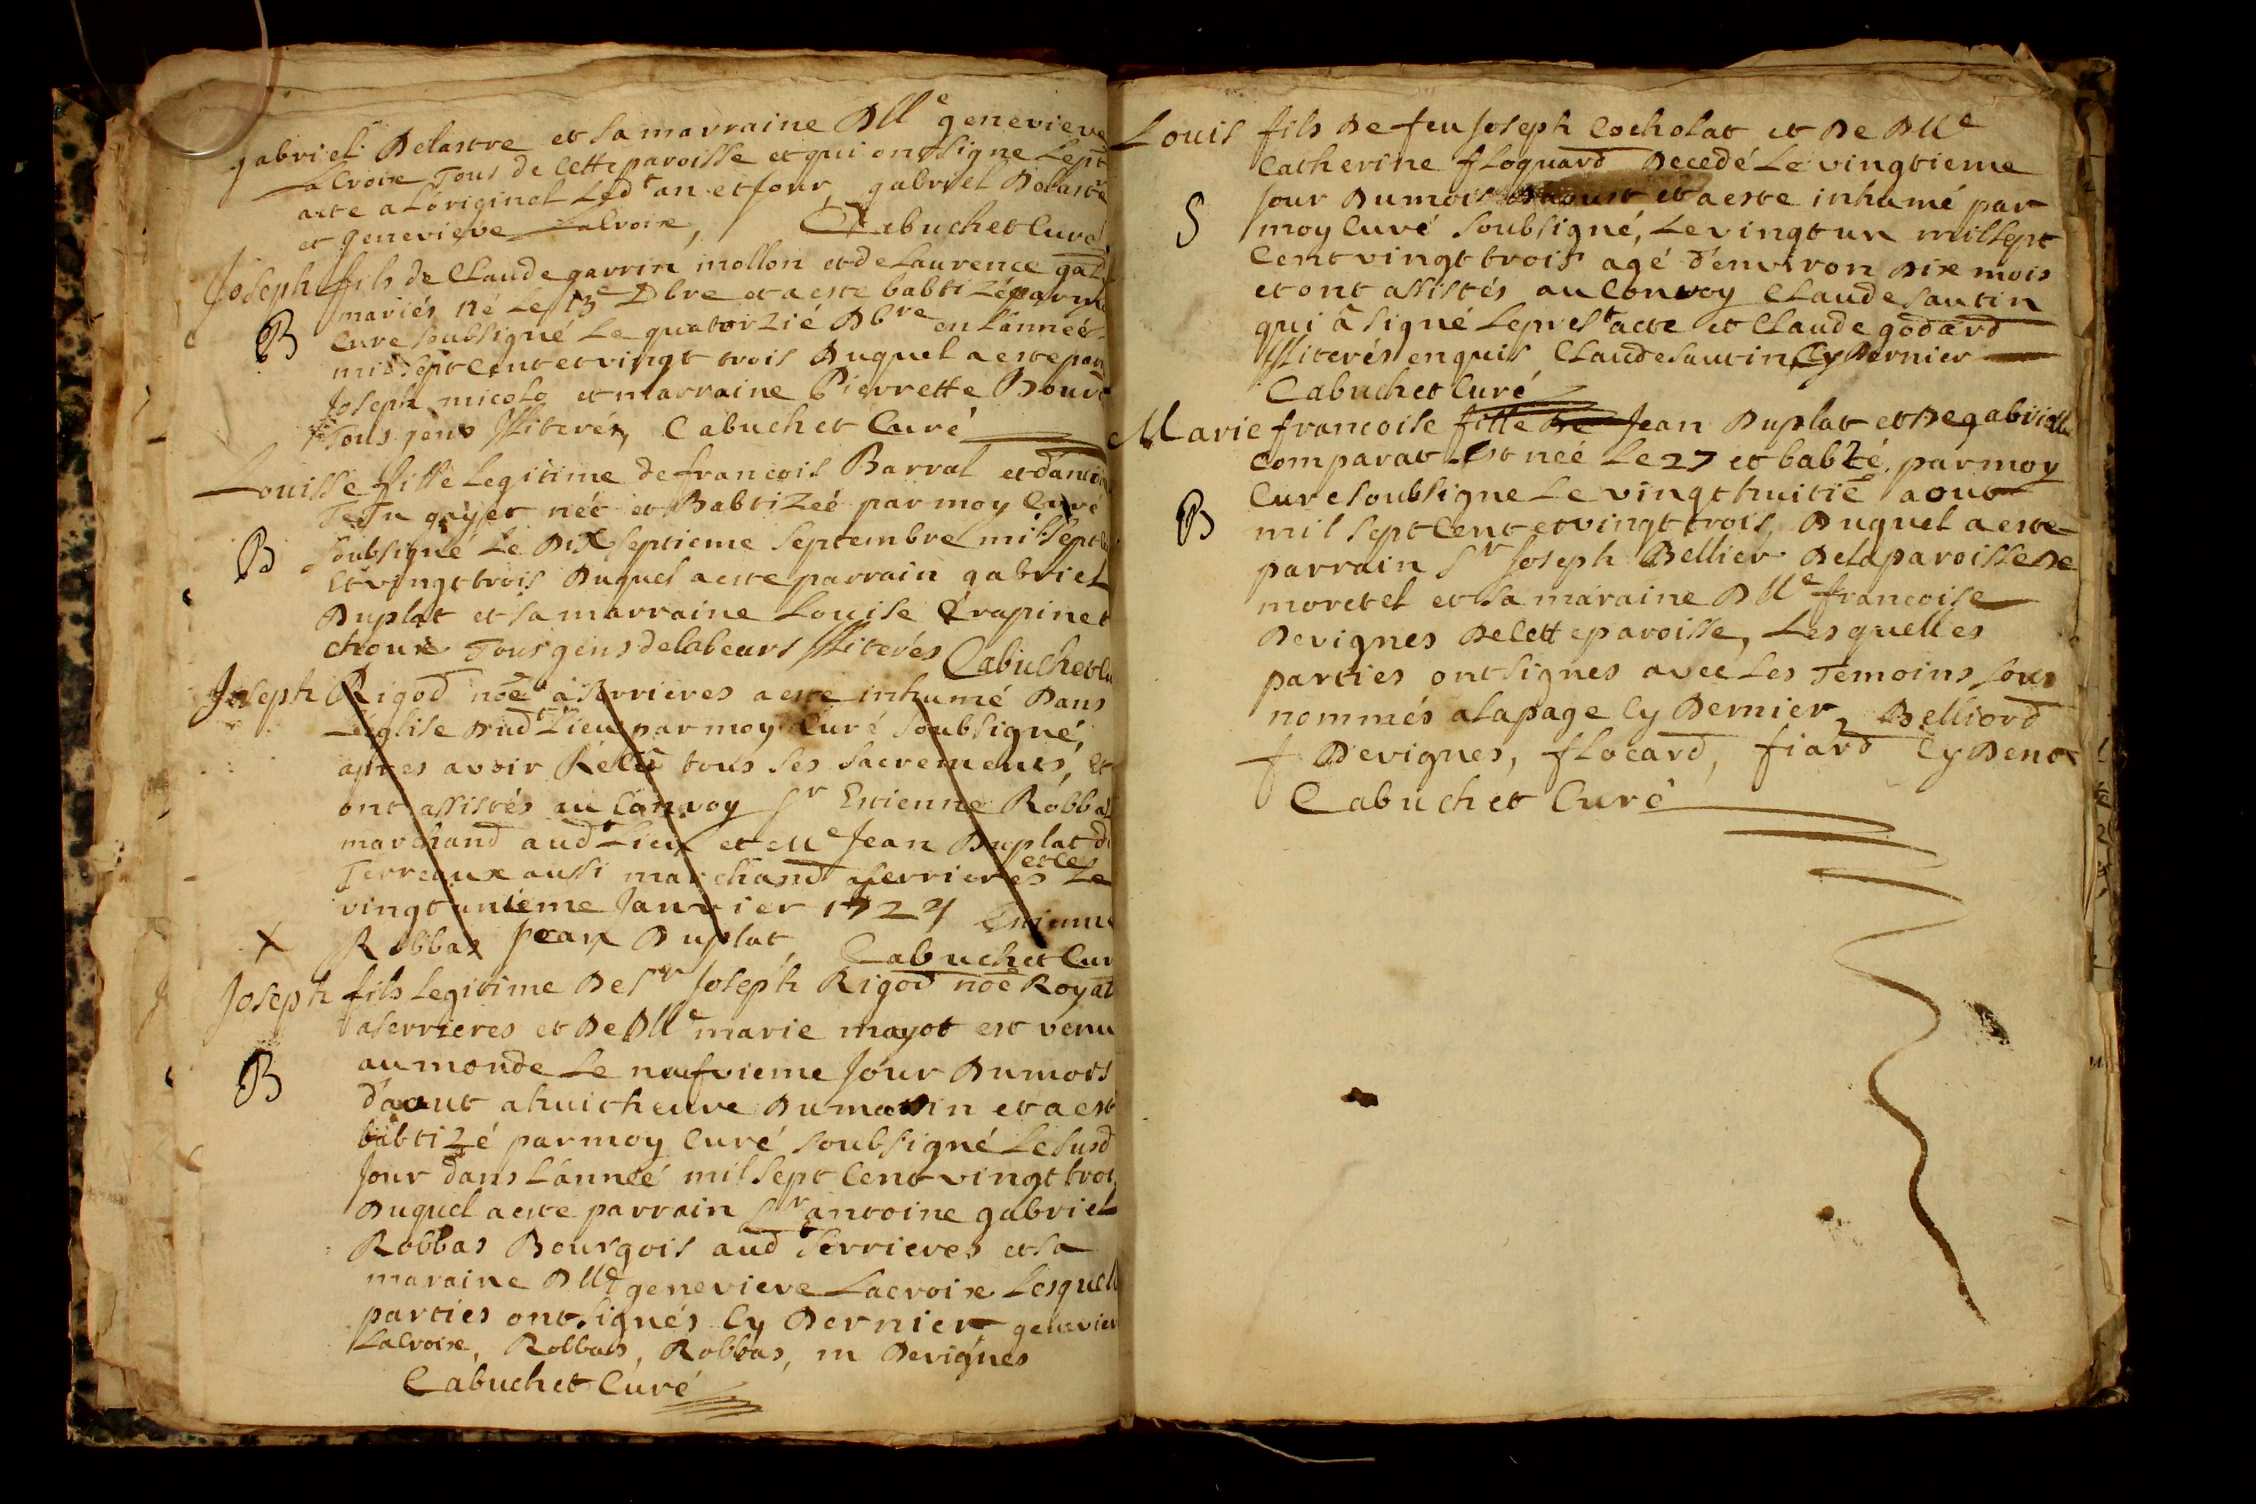 gabriel Delastre et sa marraine Dlle genevieve
Lacroix Tous de Cette paroisse et qui ont signe Le pst
acte a L'original Led.t an et Jour, gabriel Delastre
et genevieve Lacroix, Cabuchet Curé
Joseph fils de Claude garrin mollon et de Laurence
mariés né Le 13e Dbre et a este babtizé par moy
B
Cure soubsigné Le quatorzié Dbre en L'anneé
mil sept Cent et vingt trois Duquel a este parr
Joseph micolo et marraine Pierrette
Tous gens Illiterés, Cabuchet Curé
Louisse fille Legitime de francois Barral et
gayet neé et Babtizeé par moy Curé
B
soubsigné Le Dix septieme septembre mil sept
et vingt trois Duquel a este parrain gabriel
Duplat et sa marraine Louise trapinet
choux Tous gens de labeurs Illiterés Cabuchet Cu
Joseph Rigod noe à serrieres a este inhumé Dans
L'eglise Dudt Lieu par moy Curé soubsigné,
apres avoir Reçu tous ses sacrements, et
ont assistés au Convoy Sr Etienne Robbas
marchand audt Lieu et Me Jean Duplat d
Terreaux aussi marchand a serrieres et ce Le
vingt unieme Janvier 1724 Etienne
X
Robbas Jean Duplat, Cabuchet Cur
Joseph fils Legitime De Sr Joseph Rigod noe Royal
a serrieres et De Dlle marie mayot est venu
B
au monde Le neufvieme Jour Du mois
d'aout a huit heure Du matin et a est
babtizé par moy Curé soubsigné Le susd
Jour dans L'anneé mil sept Cent vingt trois
Duquel a este parrain Sr antoine gabriel
Robbas Bourgois audt serrieres et sa
maraine Dlle genevieve Lacroix Lesquell
parties ont signés Cy Dernier, geneviev
Lacroix, Robbas, Robbas, m Devignes
Cabuchet Curé
Louis fils De feu Joseph Cocholat et De Dlle
Catherine floquard Decedé Le vingtieme
S
Jour Du mois D'aoust et a este inhumé par
moy Curé soubsigné, Le vingt un mil sept
Cent vingt trois agé d'environ Dix mois
et ont assistés au Convoy Claude sautin
qui a signé Le prest acte et Claude godard
Illiterés enquis Claude sautin Cy Dernier
Cabuchet Curé
Marie francoise fille De Jean Duplat et De gabrielle
Comparat Est neé Le 27 et babzé. par moy
Cure soubsigne Le vingt huitié aout
B
mil sept Cent et vingt trois, Duquel a este
parrain Sr Joseph Bellier De la paroisse De
moretel et sa maraine Dlle francoise
Devignes De Cette paroisse, Lesquelles
parties ont signés avec Les Temoins sous
nommés a La page Cy Dernier, Belliord
f Devignes, flocard, fiard Cy Dent
Cabuchet Curé